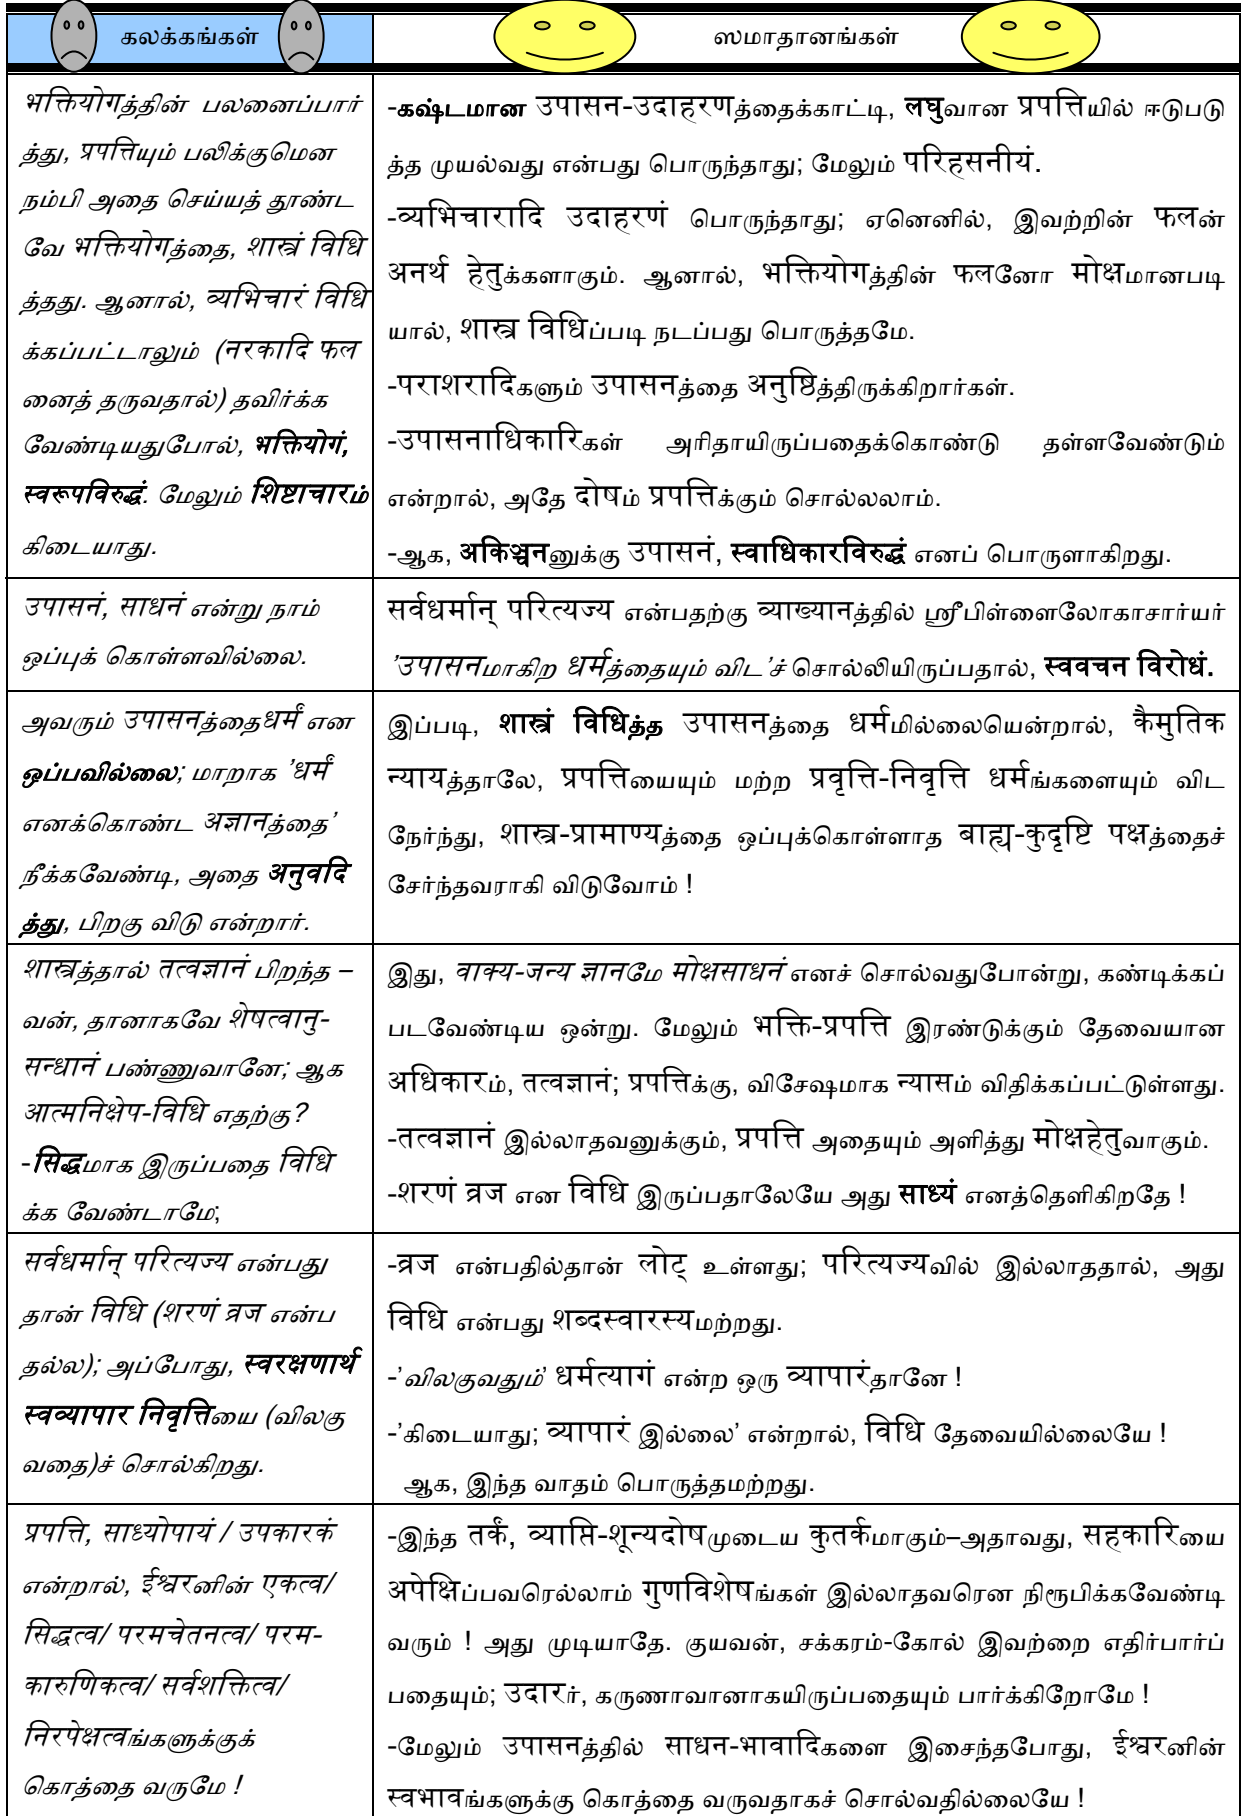 கலக்கங்கள்
ஸமாதானங்கள்
भक्तियोगத்தின் பலனைப்பார்
த்து, प्रपत्तिயும் பலிக்குமென
நம்பி அதை செய்யத் தூண்ட
வே भक्तियोगத்தை, शास्त्रं विधि
த்தது. ஆனால், व्यभिचारं विधि
க்கப்பட்டாலும் (नरकादि फल
னைத் தருவதால்) தவிர்க்க
வேண்டியதுபோல், भक्तियोगं,
स्वरूपविरुद्धं. மேலும் शिष्टाचारம்
கிடையாது.
-கஷ்டமான उपासन-उदाहरणத்தைக்காட்டி, लघुவான प्रपत्तिயில் ஈடுபடு
த்த முயல்வது என்பது பொருந்தாது; மேலும் परिहसनीयं.
-व्यभिचारादि उदाहरणं பொருந்தாது; ஏனெனில், இவற்றின் फलன்
अनर्थ हेतुக்களாகும். ஆனால், भक्तियोगத்தின் फलனோ मोक्षமானபடி
யால், शास्त्र विधिப்படி நடப்பது பொருத்தமே.
-पराशरादिகளும் उपासनத்தை अनुष्ठिத்திருக்கிறார்கள்.
-उपासनाधिकारिகள் அரிதாயிருப்பதைக்கொண்டு தள்ளவேண்டும்
என்றால், அதே दोषம் प्रपत्तिக்கும் சொல்லலாம்.
-ஆக, अकिञ्चनனுக்கு उपासनं, स्वाधिकारविरुद्धं எனப் பொருளாகிறது.
उपासनं, साधनं என்று நாம்
ஒப்புக் கொள்ளவில்லை.
सर्वधर्मान् परित्यज्य என்பதற்கு व्याख्यानத்தில் ஸ்ரீபிள்ளைலோகாசார்யர்
’उपासनமாகிற धर्मத்தையும் விட’ச் சொல்லியிருப்பதால், स्ववचन विरोधं.
அவரும் उपासनத்தைधर्मं என
ஒப்பவில்லை; மாறாக ’धर्मं
எனக்கொண்ட अज्ञानத்தை’
நீக்கவேண்டி, அதை अनुवदि
த்து, பிறகு விடு என்றார்.
இப்படி, शास्त्रं विधिத்த उपासनத்தை धर्मமில்லையென்றால், कैमुतिक
न्यायத்தாலே, प्रपत्तिயையும் மற்ற प्रवृत्ति-निवृत्ति धर्मங்களையும் விட
நேர்ந்து, शास्त्र-प्रामाण्यத்தை ஒப்புக்கொள்ளாத बाह्य-कुदृष्टि पक्षத்தைச்
சேர்ந்தவராகி விடுவோம் !
शास्त्रத்தால் तत्वज्ञानं பிறந்த –
வன், தானாகவே शेषत्वानु-
सन्धानं பண்ணுவானே; ஆக
आत्मनिक्षेप-विधि எதற்கு?
-सिद्धமாக இருப்பதை विधि
க்க வேண்டாமே;
இது, वाक्य-जन्य ज्ञानமே मोक्षसाधनं எனச் சொல்வதுபோன்று, கண்டிக்கப்
படவேண்டிய ஒன்று. மேலும் भक्ति-प्रपत्ति இரண்டுக்கும் தேவையான
अधिकारம், तत्वज्ञानं; प्रपत्तिக்கு, விசேஷமாக न्यासம் விதிக்கப்பட்டுள்ளது.
-तत्वज्ञानं இல்லாதவனுக்கும், प्रपत्ति அதையும் அளித்து मोक्षहेतुவாகும்.
-शरणं व्रज என विधि இருப்பதாலேயே அது साध्यं எனத்தெளிகிறதே !
सर्वधर्मान् परित्यज्य என்பது
தான் विधि (शरणं व्रज என்ப
தல்ல); அப்போது, स्वरक्षणार्थ
स्वव्यापार निवृत्तिயை (விலகு
வதை)ச் சொல்கிறது.
-व्रज என்பதில்தான் लोट् உள்ளது; परित्यज्यவில் இல்லாததால், அது
विधि என்பது शब्दस्वारस्यமற்றது.
-’விலகுவதும்’ धर्मत्यागं என்ற ஒரு व्यापारंதானே !
-’கிடையாது; व्यापारं இல்லை’ என்றால், विधि தேவையில்லையே !
ஆக, இந்த வாதம் பொருத்தமற்றது.
प्रपत्ति, साध्योपायं / उपकारकं
என்றால், ईश्वरனின் एकत्व/
सिद्धत्व/ परमचेतनत्व/ परम-
कारुणिकत्व/ सर्वशक्तित्व/
निरपेक्षत्वங்களுக்குக்
கொத்தை வருமே !
-இந்த तर्कं, व्याप्ति-शून्यदोषமுடைய कुतर्कமாகும்–அதாவது, सहकारिயை
अपेक्षिப்பவரெல்லாம் गुणविशेषங்கள் இல்லாதவரென நிரூபிக்கவேண்டி
வரும் ! அது முடியாதே. குயவன், சக்கரம்-கோல் இவற்றை எதிர்பார்ப்
பதையும்; उदारர், கருணாவானாகயிருப்பதையும் பார்க்கிறோமே !
-மேலும் उपासनத்தில் साधन-भावादिகளை இசைந்தபோது, ईश्वरனின்
स्वभावங்களுக்கு கொத்தை வருவதாகச் சொல்வதில்லையே !